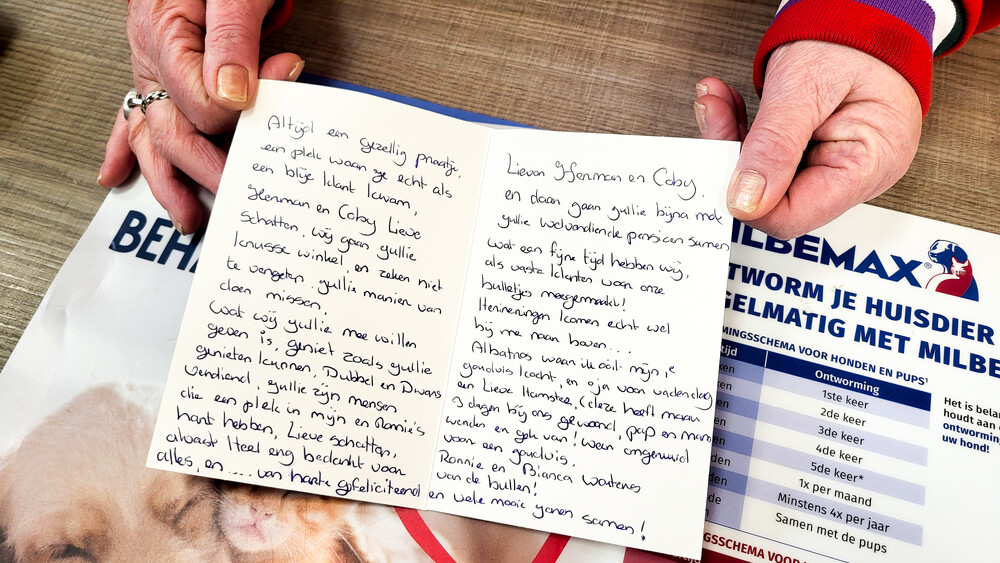 Altijd een gezellig praatje,
een plek waar je echt als
een blije klant kwam,
Herman en Coby Lieve
Schatten, wij gaan jullie
knusse winkel, en zeker niet
te vergeten. jullie manier van
doen missen!
Wat wij jullie mee willen
geven is, geniet zoals jullie
genieten kunnen, Dubbel en Dwars
Verdiend, jullie zijn mensen
die een plek in mijn en Ronnie's
hart hebben, Lieve schatten,
alvast Heel erg bedankt voor
alles, en ..... van harte gefeliciteerd
Lieve Herman en Coby.
en dan gaan jullie bijna met
jullie welverdiende pensioen samen
wat een fijne tijd hebben wij,
als vaste klanten van onze
bulletjes meegemaakt!
Herineringen komen echt wel
bij me naar boven...
Albatros waar ik ooit mijn 1e
goudvis kocht, en o ja voor vaderdag
een Lieve Hamster, (deze heeft maar
3 dagen bij ons gewoond, pap en mam
werden en gek van! weer omgeruild
voor een goudvis.
Ronnie en Bianca
van de bullen!
en vele mooie jaren samen!
BEH
MILBEMAX®
NTWORM JE HUISDIER
GELMATIG MET MILBE
MINGSSCHEMA VOOR HONDEN EN PUPS¹
tijd Ontworming
ken 1ste keer
en 2de keer
en 3de keer
den 4de keer
den 5de keer*
en 1x per maand
de Minstens 4x per jaar
Samen met de pups
Het is bela
houdt aan
ontworming
uw hond!
NGSSCHEMA VOOR